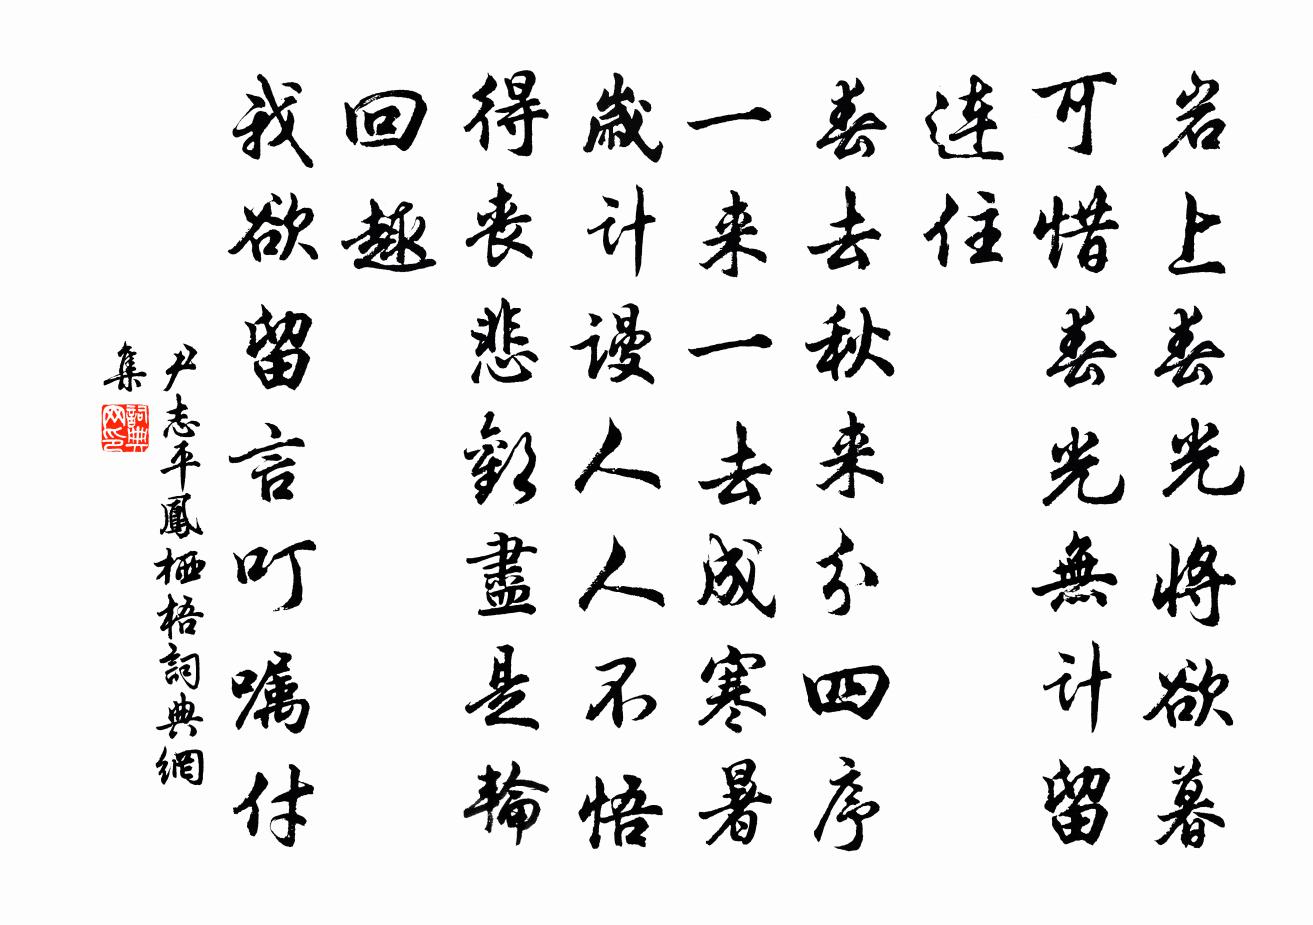 岩上春光将欲暮
可惜春光無计留
连住
春去秋来分四序
一来一去成寒暑
歲计谩人人不悟
得丧悲歡盡是輪
回趣
我欲留言叮嘱付
尹志平鳳栖梧詞典網
集
詞典
网印